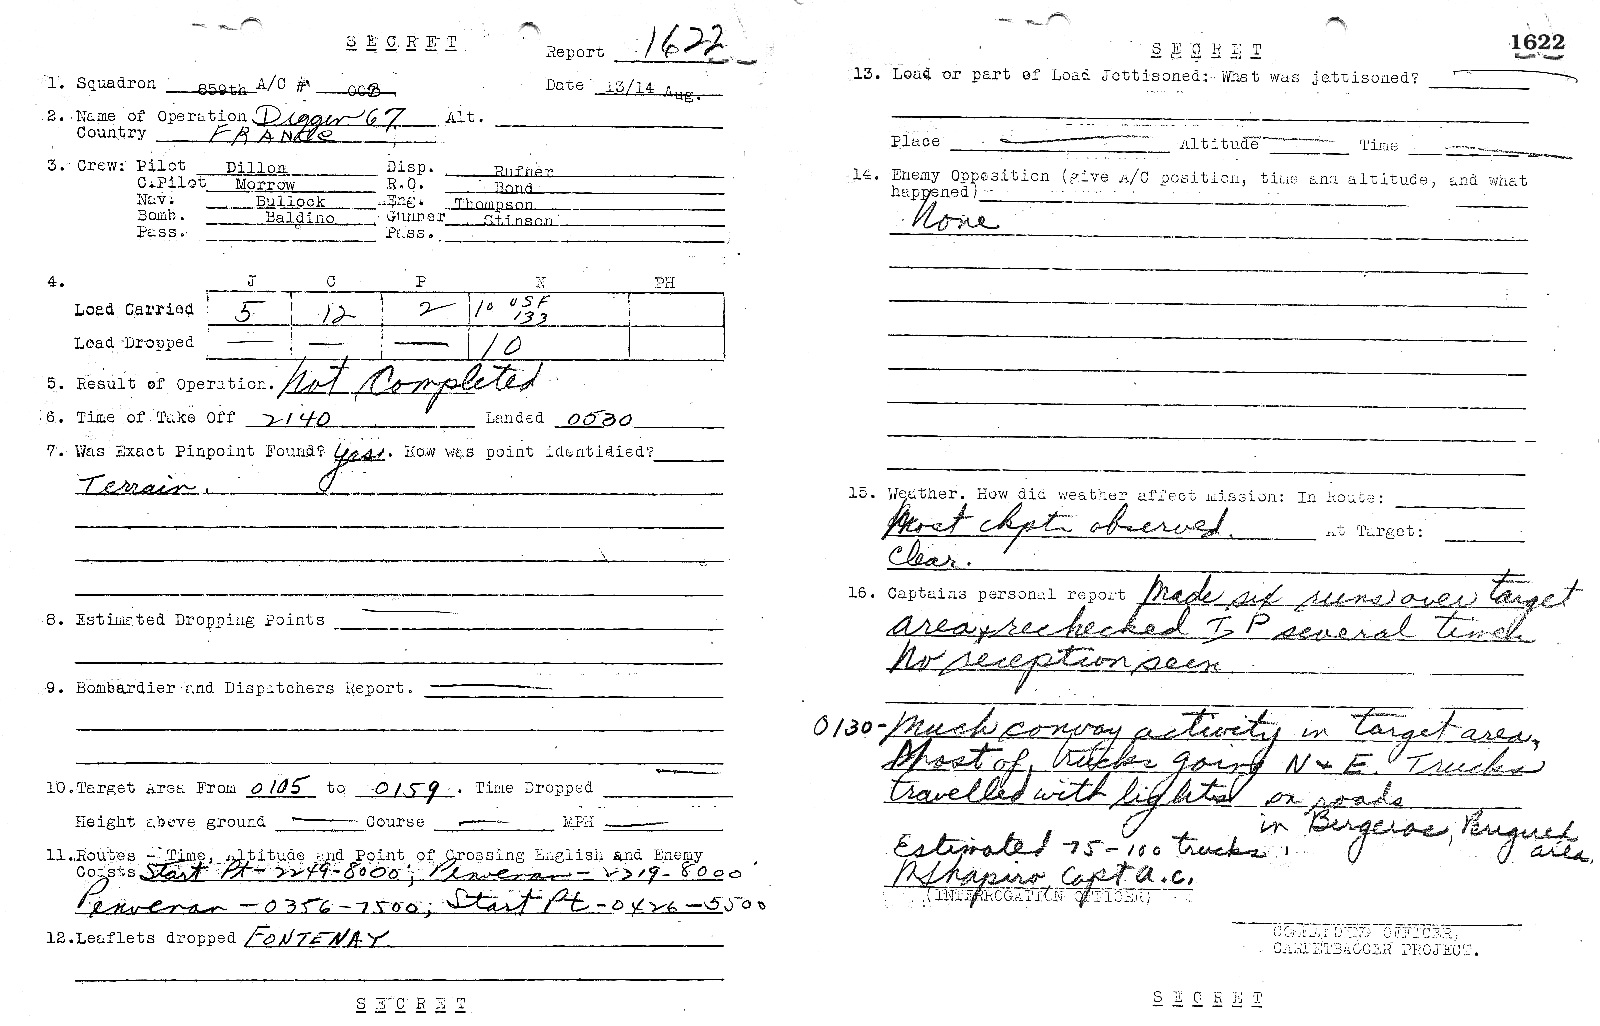 SECRET
Report 1622
1. Squadron 859th A/C # 008
Date 13/14 Aug.
2. Name of Operation Digger 67 Alt.
Country FRANCE
3. Crew: Pilot Dillon Disp. Rufner
C.Pilot Morrow R.O. Bond
Nav: Bullock Eng. Thompson
Bomb. Baldino Gunner Stinson
Pass. Pass.
4. J C P N PH
Load Carried 5 12 2 10 USF 133
Load Dropped — — — 10
5. Result of Operation. Not Completed
6. Time of Take Off 2140 Landed 0530
7. Was Exact Pinpoint Found? Yes. How was point identidied?
Terrain.
8. Estimated Dropping Points —
9. Bombardier and Dispatchers Report. —
10. Target Area From 0105 to 0159. Time Dropped —
Height above ground — Course — MPH —
11. Routes - Time, Altitude and Point of Crossing English and Enemy
Coasts Start Pt - 2249-8000; Penveran - 2319-8000
Penveran - 0356-7500; Start Pt - 0426-5500
12. Leaflets dropped FONTENAY
SECRET
SECRET
1622
13. Load or part of Load Jettisoned: What was jettisoned? —
Place — Altitude — Time —
14. Enemy Opposition (give A/C position, time and altitude, and what
happened)
None
15. Weather. How did weather affect mission: In Route:
Most ckpts observed. At Target:
Clear.
16. Captains personal report Made six runs over target
area & rechecked IP several times
No reception seen
0130 - Much convoy activity in target area.
Most of trucks going N & E. Trucks
travelled with lights on roads
in Bergerac, Perigueux
area.
Estimated 75-100 trucks.
N Shapiro, Capt A.C.
(INTERROGATION OFFICER)
COMPLETED OFFICER,
CARPETBAGGER PROJECT.
SECRET